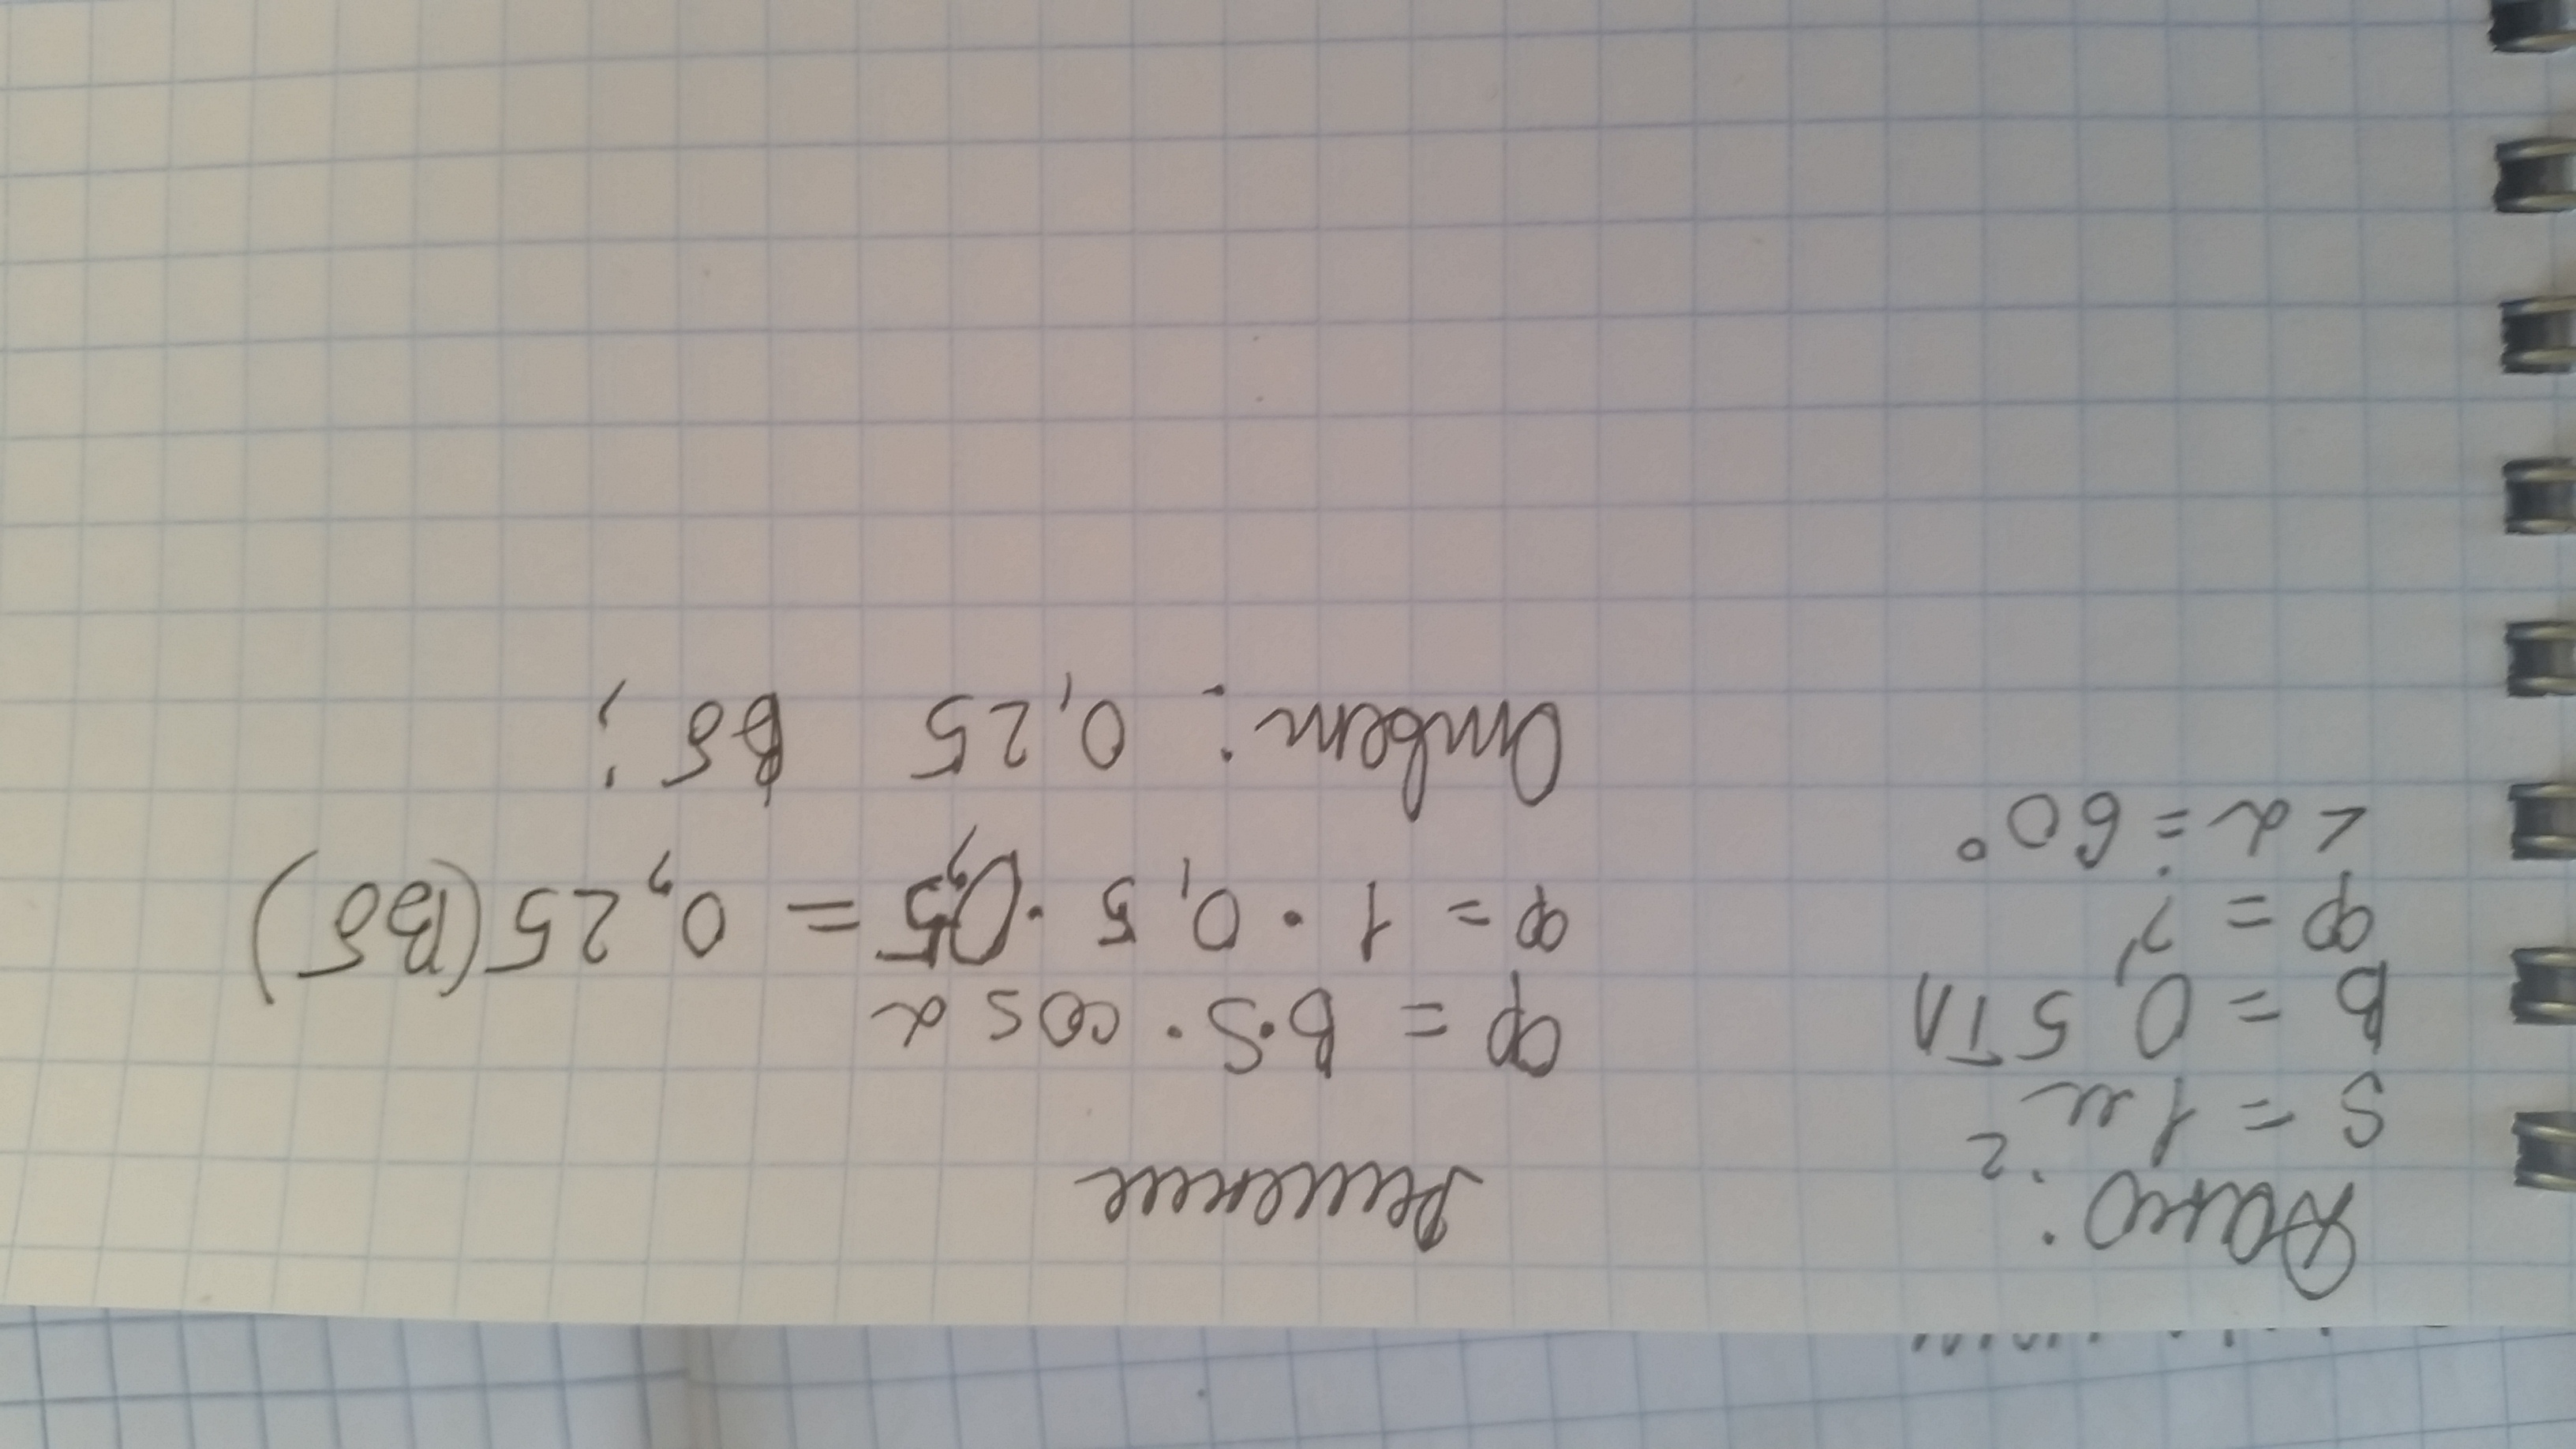 Дано:
S = 1 м²
B = 0,5 Тл
φ = ?
<α = 60°
Решение
φ = B·S·cos α
φ = 1 · 0,5 · 0,5 = 0,25 (Вб)
Ответ: 0,25 Вб;